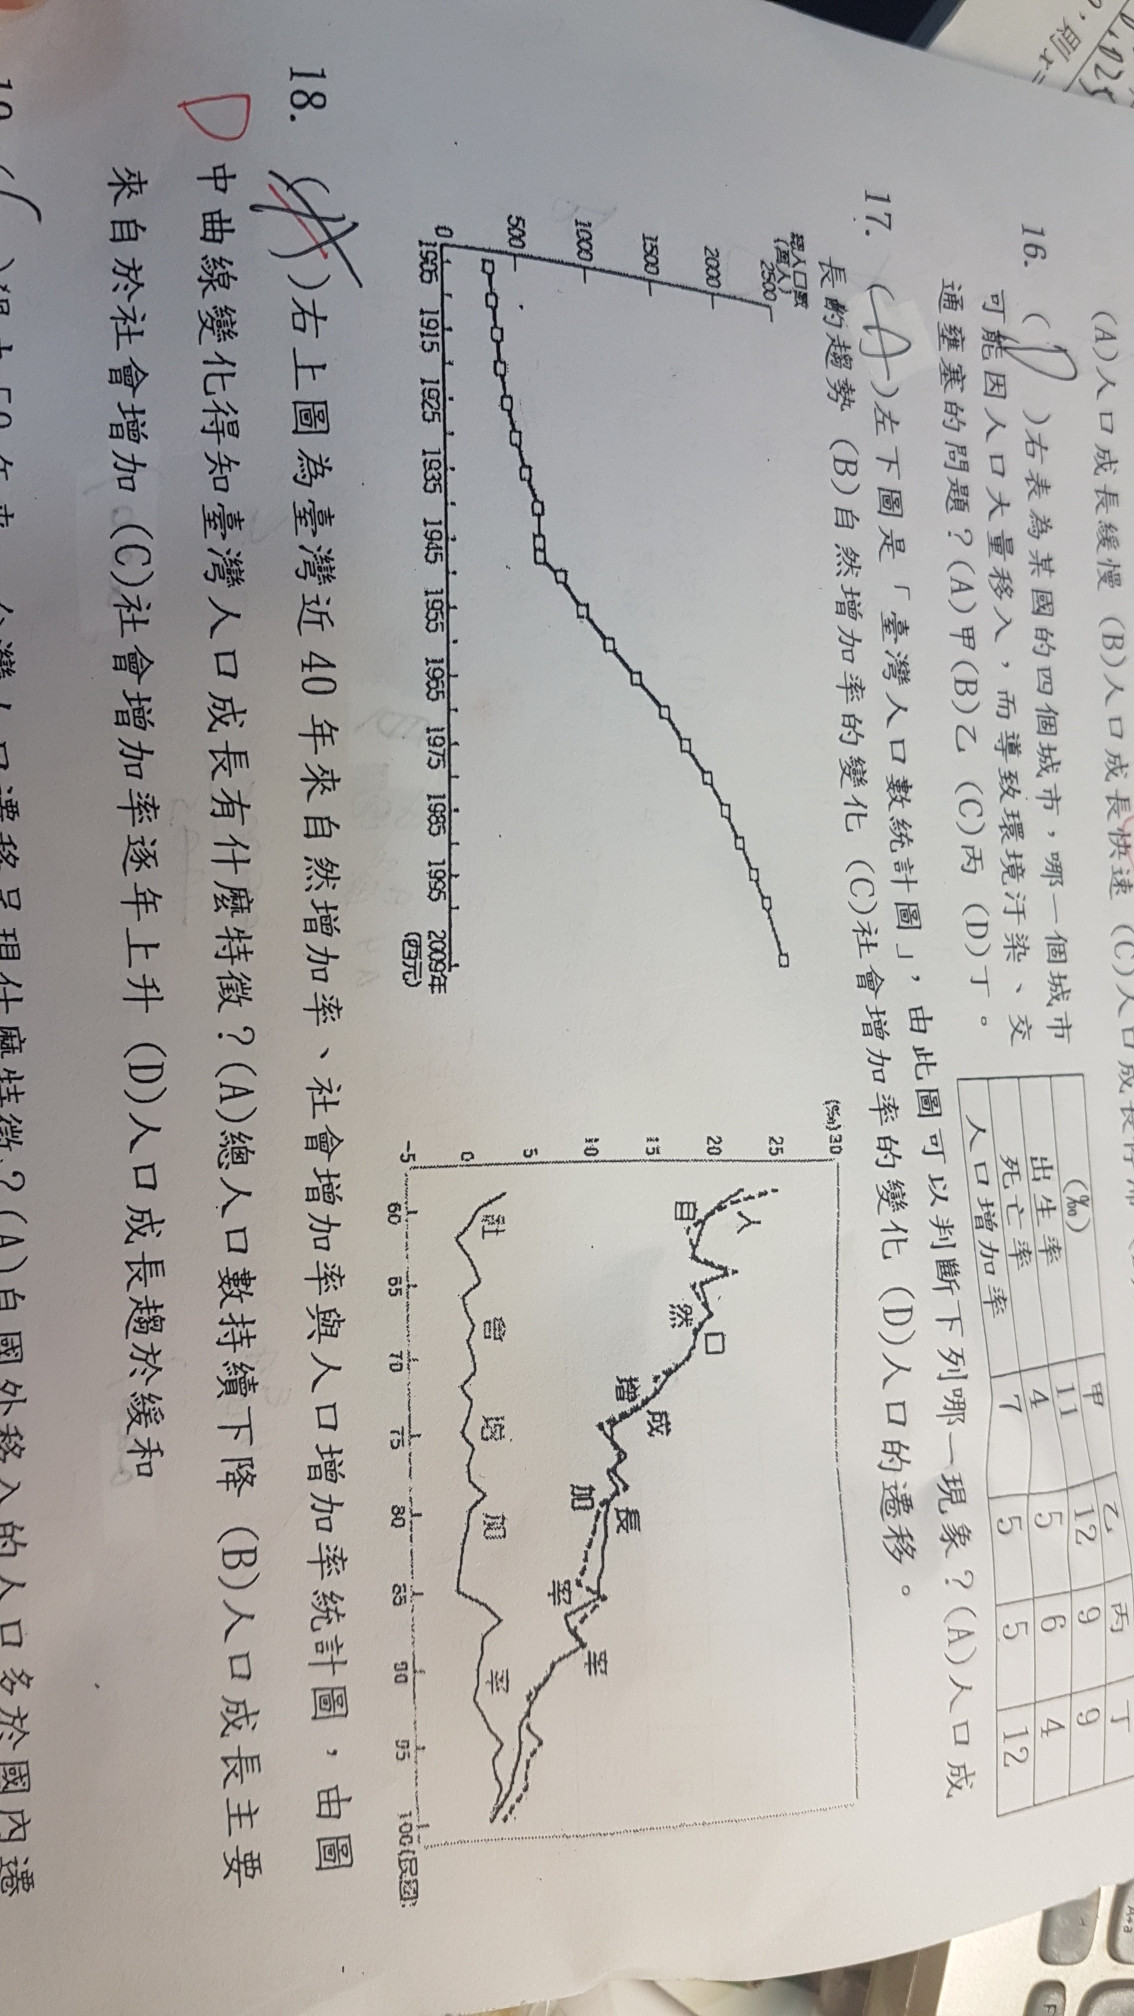 (A)人口成長緩慢 (B)人口成長快速 (C)人口成長停滯
16. ( D )右表為某國的四個城市，哪一個城市
可能因人口大量移入，而導致環境汙染、交
通壅塞的問題？(A)甲(B)乙 (C)丙 (D)丁。
(‰) 甲 乙 丙 丁
出生率 11 12 9 9
死亡率 4 5 6 4
人口增加率 7 5 5 12
17. ( A )左下圖是「臺灣人口數統計圖」，由此圖可以判斷下列哪一現象？(A)人口成
長的趨勢 (B)自然增加率的變化 (C)社會增加率的變化 (D)人口的遷移。
總人口數
(萬人)
2500
2000
1500
1000
500
0
1905 1915 1925 1935 1945 1955 1965 1975 1985 1995 2009年
(西元)
(‰)30
25
20
15
10
5
0
-5
人口成長率
自然增加率
社會增加率
60 65 70 75 80 85 90 95 100(民國)
18. ( A )右上圖為臺灣近40年來自然增加率、社會增加率與人口增加率統計圖，由圖
D
中曲線變化得知臺灣人口成長有什麼特徵？(A)總人口數持續下降 (B)人口成長主要
來自於社會增加 (C)社會增加率逐年上升 (D)人口成長趨於緩和
人口遷移呈現什麼特徵？(A)自國外移入的人口多於國內遷